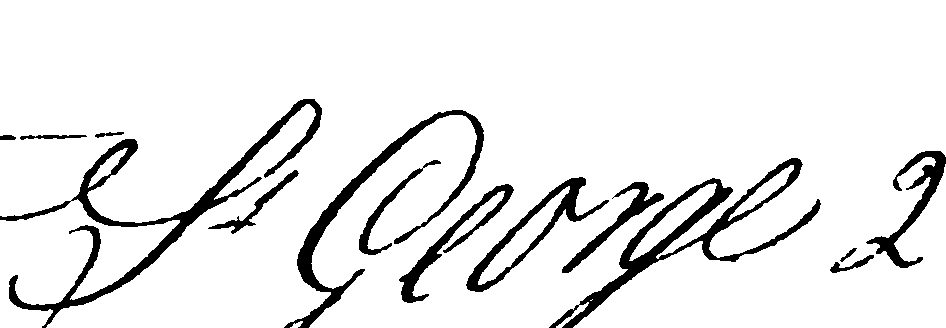 St George 2